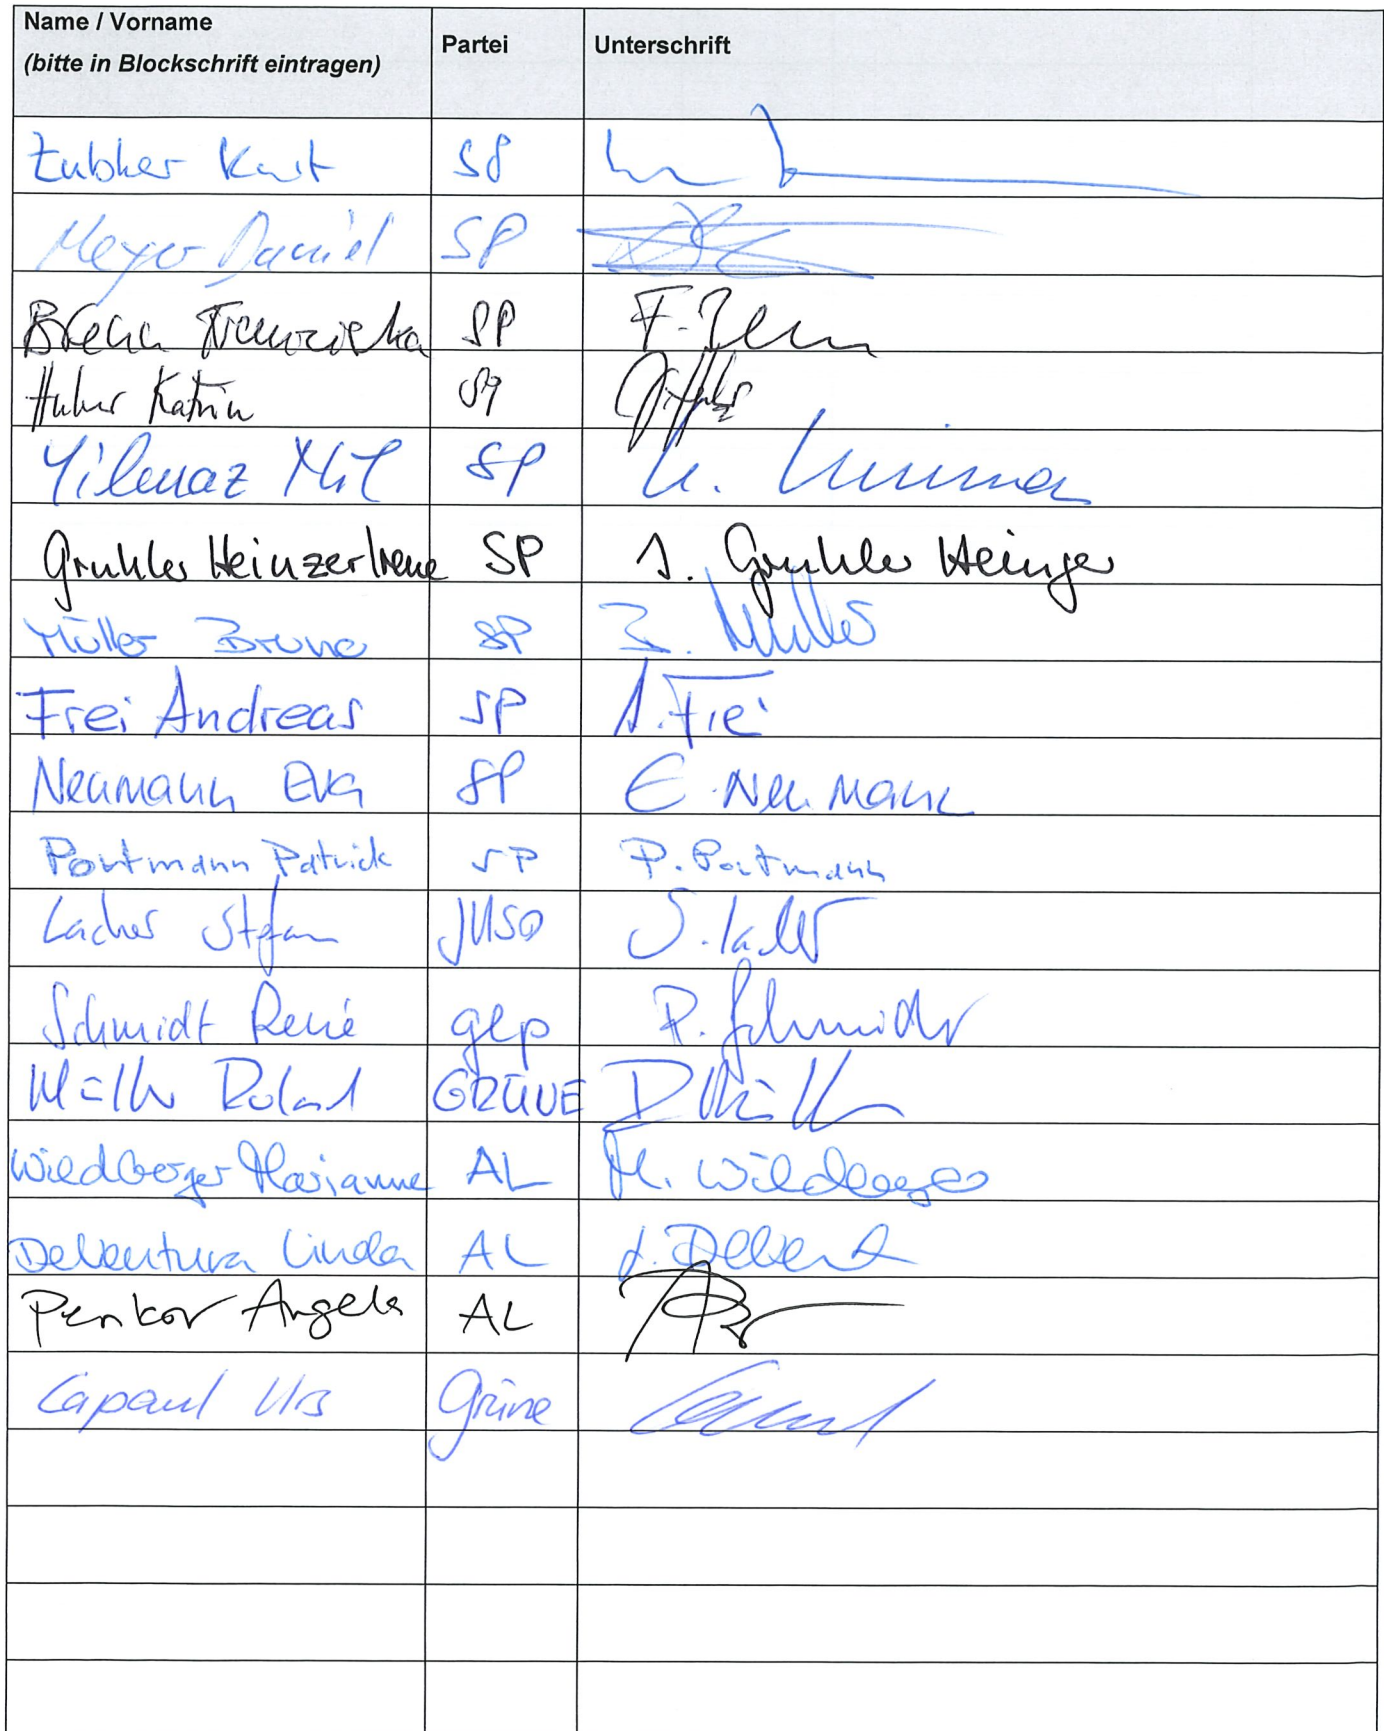 Name / Vorname
(bitte in Blockschrift eintragen)
Partei
Unterschrift
Zubler Kurt SP
Meyer Daniel SP
Brenn Franziska SP F. Brenn
Huber Katrin SP
Yilmaz SP
Gruhler Heinzer Irene SP I. Gruhler Heinzer
Müller Bruno SP B. Müller
Frei Andreas SP A. Frei
Neumann Eva SP E. Neumann
Portmann Patrick SP P. Portmann
Lacher Stefan JUSO S. Lacher
Schmidt René glp R. Schmidt
Müller Roland GRÜNE R Müller
Wildberger Marianne AL M. Wildberger
De Ventura Linda AL L. De Vent
Penkov Angela AL
Capaul Urs Grüne Capaul